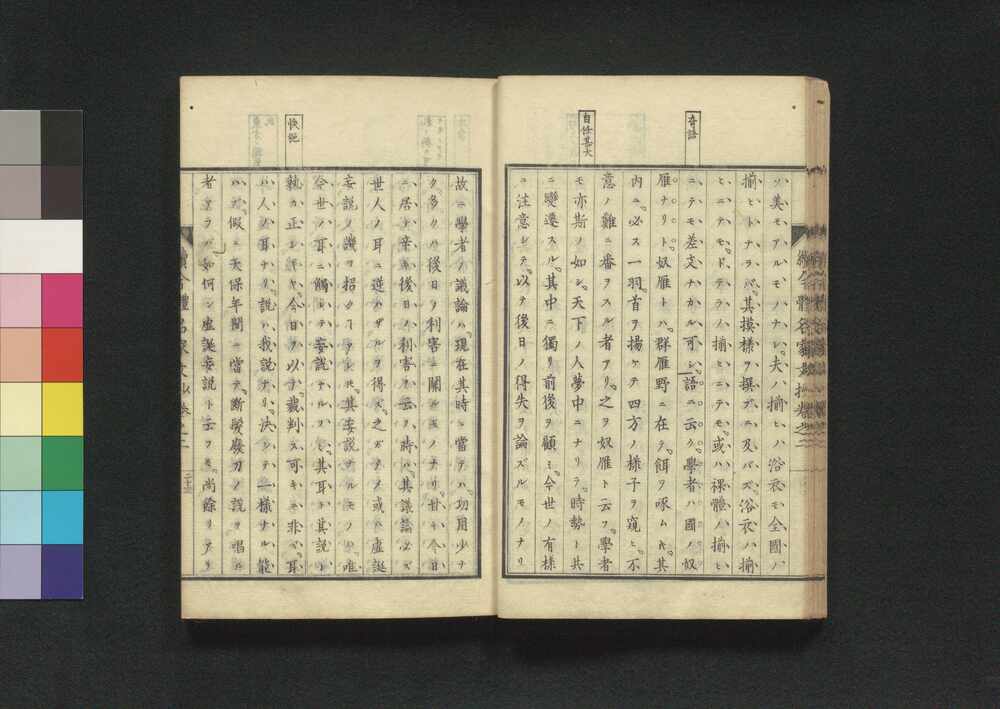 奇語
自任甚大
ソ、美モアルモノナシ。夫ハ揃ヒハ浴衣モ全國ノ
揃ヒトナラバ、其摸様ヲ撰ブニ及バズ、浴衣ハ揃
ヒニテモ、ドテラノ揃ヒニテモ、或ハ裸體ノ揃ヒ
ニテモ差支ナカル可シ。語ニ云ク、學者ハ國ノ奴
雁ナリト。奴雁トハ、群雁野ニ在テ餌ヲ啄ム𪜈、其
内ニ必ス一羽首ヲ揚ケテ四方ノ様子ヲ窺ヒ、不
意ノ難ニ番ヲスル者アリ、之ヲ奴雁ト云フ。學者
モ亦斯ノ如シ。天下ノ人夢中ニナリテ、時勢ト共
ニ變遷スル、其中ニ獨リ前後ヲ顧ミ、今世ノ有様
ニ注意シテ、以テ後日ノ得失ヲ論ズルモノナリ
續今體名家文抄卷之二
快絶
故ニ學者ノ議論ハ、現在其時ニ當テハ、功用少ナ
ク、多クハ後日ノ利害ニ關ルモノナリ。甘キ今日
ニ居テ辛キ後日ノ利害ヲ云フ時ハ、其議論必ズ
世人ノ耳ニ逆ハザルヲ得ズ。之ガタメ或ハ虚誕
妄説ノ譏ヲ招クコアラン𪜈、其妄説ナルモノハ、唯
今世ノ耳ニ觸レテ妄説ナルノミ、其耳ト其説ト
孰カ正シキヤ、今日ヲ以テ裁判ス可キニ非ズ。耳
ハ人ノ耳ナリ、説ハ我説ナリ、決シテ一様ナル能
ハズ。假ニ天保年間ニ當テ、断髮廢刀ノ説ヲ唱ル
者アラバ如何ン、虚誕妄説ト云フモ尚餘リアリ
續今體名家文抄卷之二
二十三